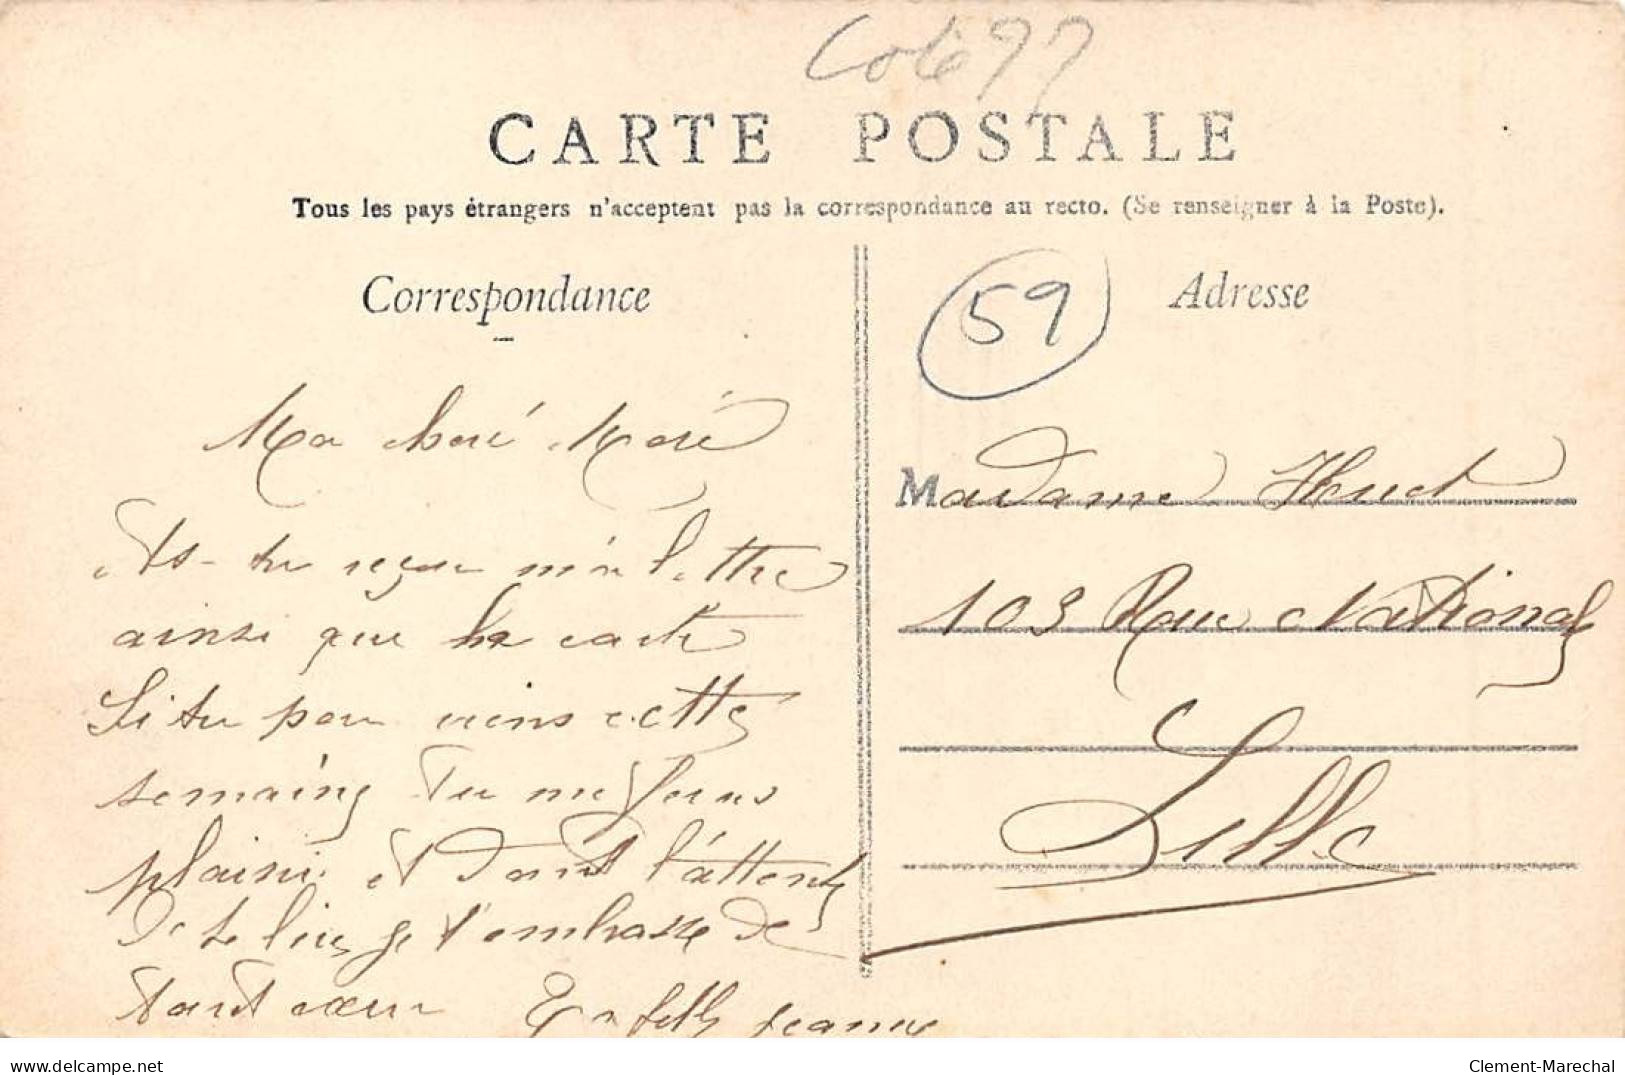 CARTE POSTALE
Tous les pays étrangers n'acceptent pas la correspondance au recto. (Se renseigner à la Poste).
Correspondance
Ma cheré Meré
As-tu reçu m'a lettre
ainsi que la carte
Si tu peu viens cetté
semaine Tu me feras
plaisir et dant l'attente
De te lire je t'embrasse de
tout cœur Ta fille Jeanne
59
Adresse
Madame Huet
103 Rue National
Lille
delcampe.net
Clement-Marechal